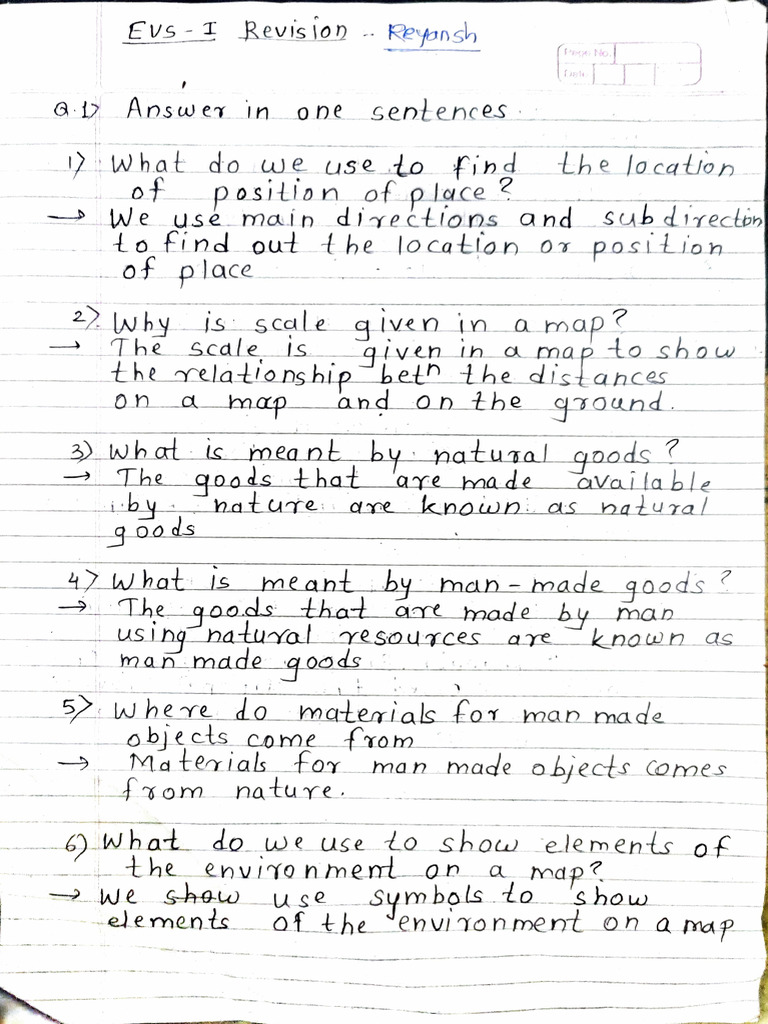 EVS - I Revision .. Reyansh
Page No.
Date
Q.1) Answer in one sentences.
1) What do we use to find the location
of position of place?
→ We use main directions and subdirection
to find out the location or position
of place
2) Why is scale given in a map?
→ The scale is given in a map to show
the relationship betn the distances
on a map and on the ground.
3) What is meant by natural goods?
→ The goods that are made available
by nature are known as natural
goods
4) What is meant by man-made goods?
→ The goods that are made by man
using natural resources are known as
man made goods
5) Where do materials for man made
objects come from
→ Materials for man made objects comes
from nature.
6) What do we use to show elements of
the environment on a map?
→ We show use symbols to show
elements of the environment on a map